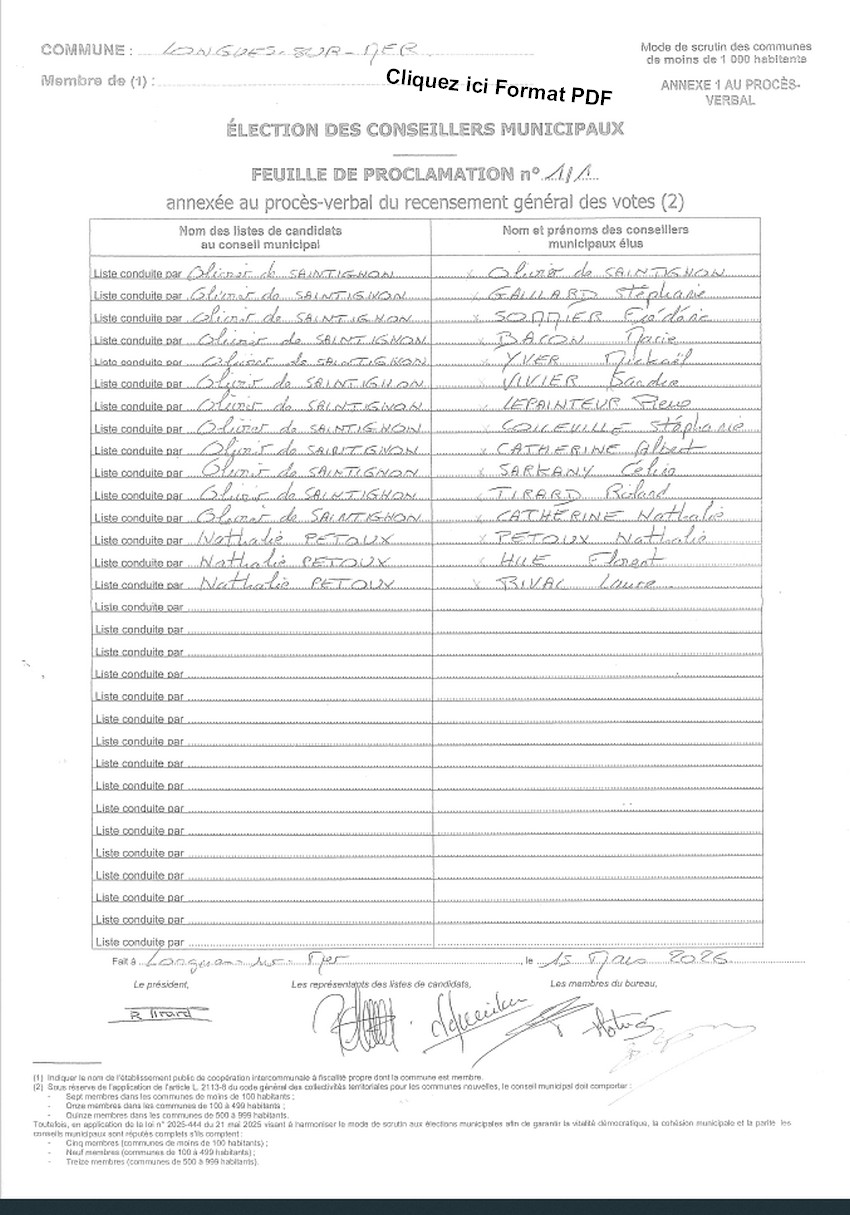 COMMUNE : LONGUES-SUR-MER
Mode de scrutin des communes
de moins de 1 000 habitants
Membre de (1) :
Cliquez ici Format PDF
ANNEXE 1 AU PROCÈS-
VERBAL
ÉLECTION DES CONSEILLERS MUNICIPAUX
FEUILLE DE PROCLAMATION n° 1/1
annexée au procès-verbal du recensement général des votes (2)
Nom des listes de candidats
au conseil municipal
Nom et prénoms des conseillers
municipaux élus
Liste conduite par Olivier de SAINTIGNON x Olivier de SAINTIGNON
Liste conduite par Olivier de SAINTIGNON x GAILLARD Stéphanie
Liste conduite par Olivier de SAINTIGNON x SOMMIER Frédéric
Liste conduite par Olivier de SAINTIGNON x BACON Marie
Liste conduite par Olivier de SAINTIGNON x YVER Mickaël
Liste conduite par Olivier de SAINTIGNON x VIVIER Sandra
Liste conduite par Olivier de SAINTIGNON x LEPAINTEUR
Liste conduite par Olivier de SAINTIGNON x COLLEVILLE Stéphanie
Liste conduite par Olivier de SAINTIGNON x CATHERINE Albert
Liste conduite par Olivier de SAINTIGNON x SARKANY Célia
Liste conduite par Olivier de SAINTIGNON x TIRARD Roland
Liste conduite par Olivier de SAINTIGNON x CATHERINE Nathalie
Liste conduite par Nathalie PETOUX x PETOUX Nathalie
Liste conduite par Nathalie PETOUX x HUE Florent
Liste conduite par Nathalie PETOUX x RIVAL Laure
Liste conduite par
Liste conduite par
Liste conduite par
Liste conduite par
Liste conduite par
Liste conduite par
Liste conduite par
Liste conduite par
Liste conduite par
Liste conduite par
Liste conduite par
Liste conduite par
Liste conduite par
Liste conduite par
Liste conduite par
Liste conduite par
Fait à Longues-sur-Mer, le 15 Mars 2026
Le président,
Les représentants des listes de candidats,
Les membres du bureau,
R Tirard
(1) Indiquer le nom de l'établissement public de coopération intercommunale à fiscalité propre dont la commune est membre.
(2) Sous réserve de l'application de l'article L. 2113-8 du code général des collectivités territoriales pour les communes nouvelles, le conseil municipal doit comporter :
- Sept membres dans les communes de moins de 100 habitants ;
- Onze membres dans les communes de 100 à 499 habitants ;
- Quinze membres dans les communes de 500 à 999 habitants.
Toutefois, en application de la loi n° 2025-444 du 21 mai 2025 visant à harmoniser le mode de scrutin aux élections municipales afin de garantir la vitalité démocratique, la cohésion municipale et la parité les
conseils municipaux sont réputés complets s'ils comptent :
- Cinq membres (communes de moins de 100 habitants) ;
- Neuf membres (communes de 100 à 499 habitants) ;
- Treize membres (communes de 500 à 999 habitants).